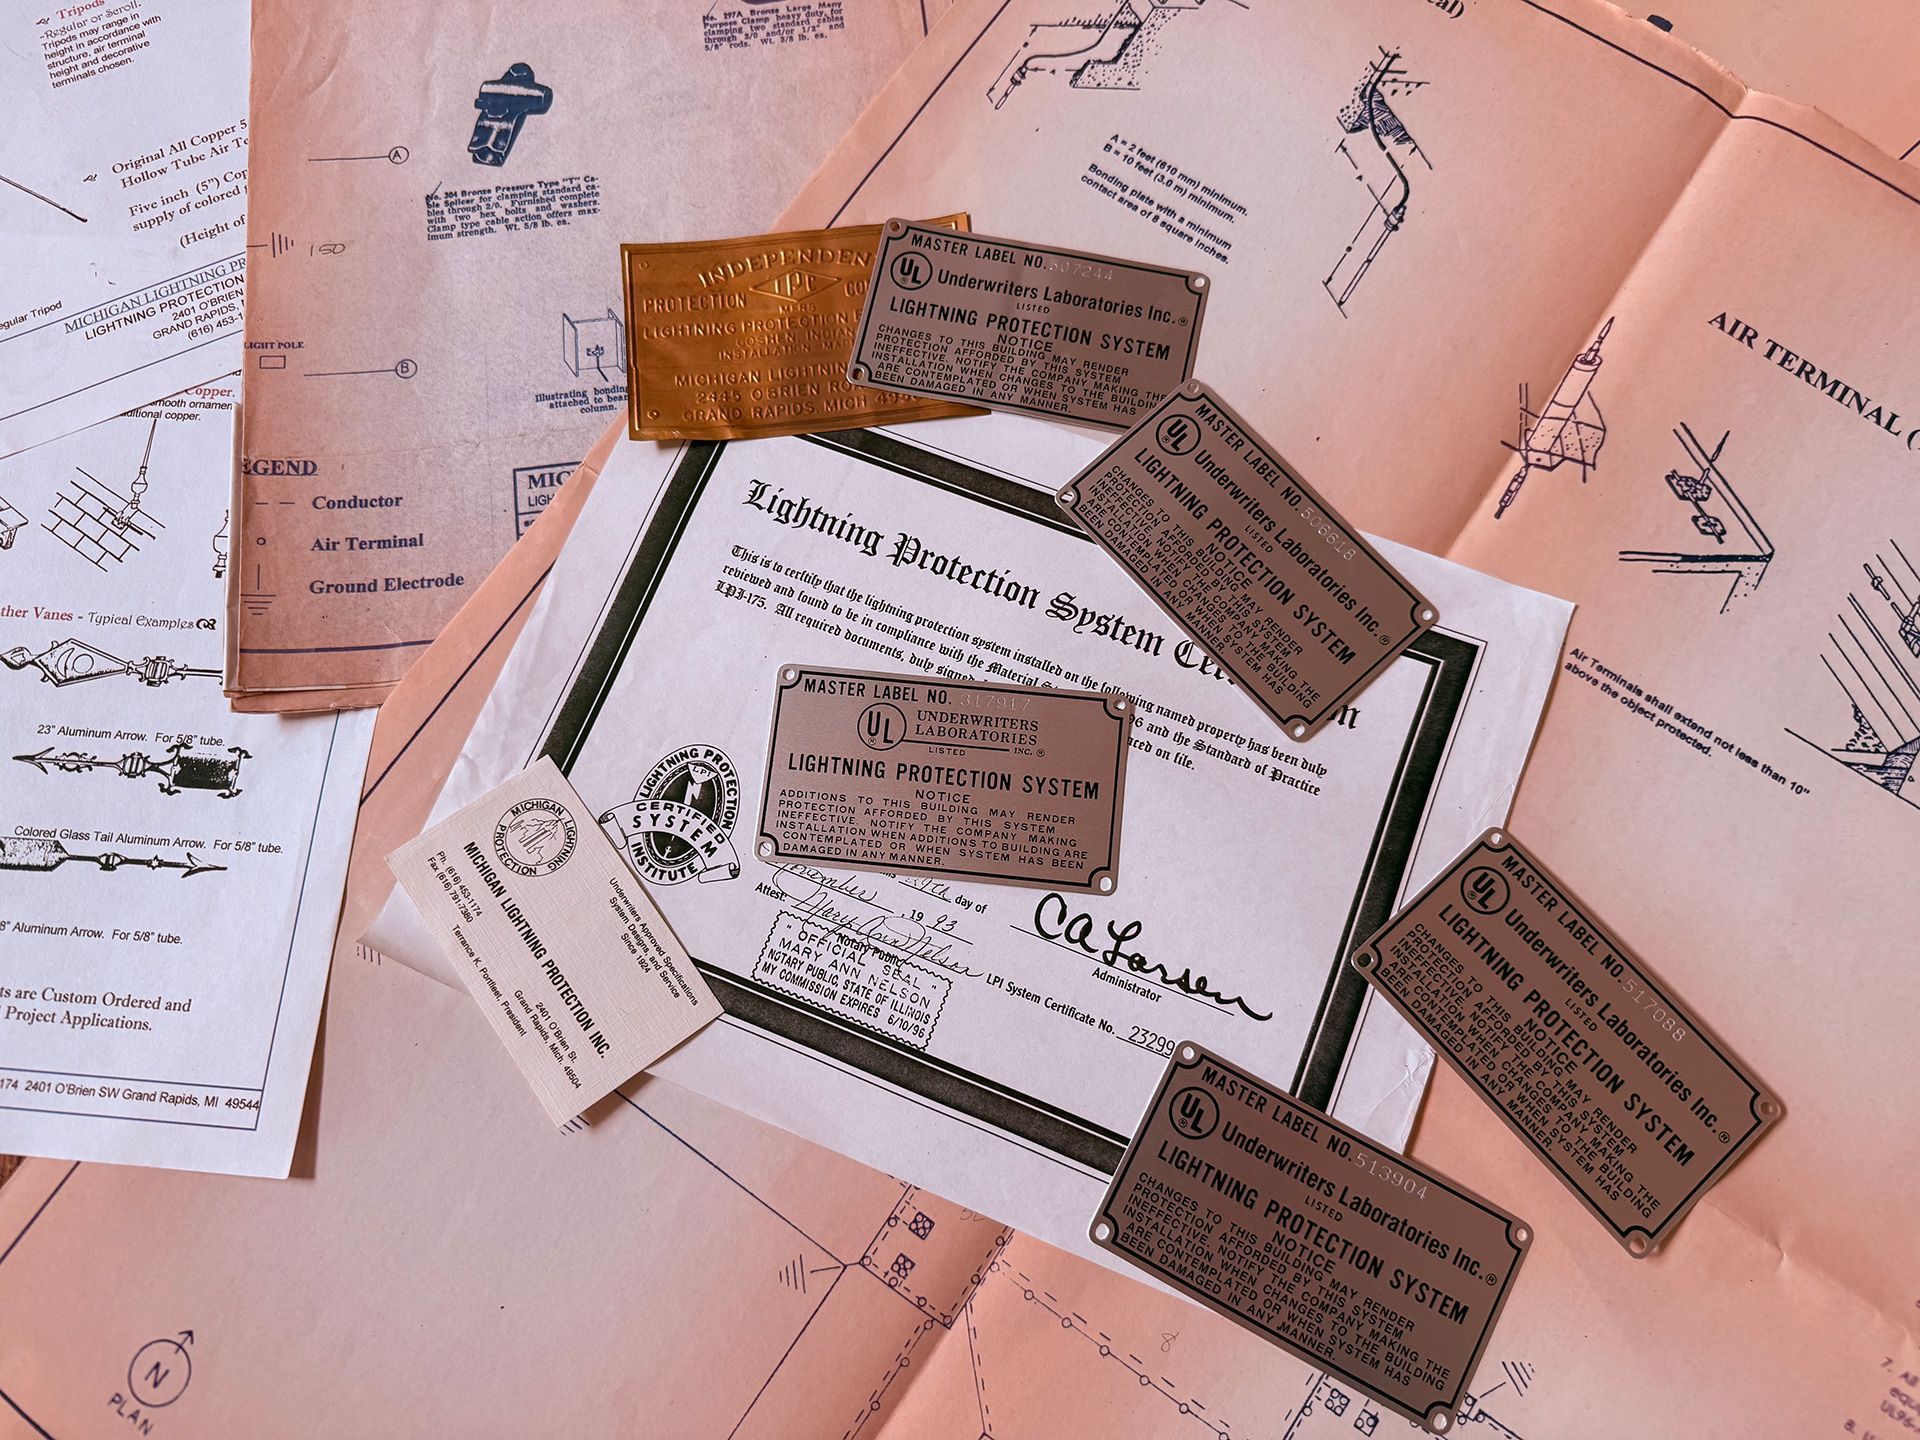 Tripods
~Regular or Scroll.
Tripods may range in
height in accordance with
structure, air terminal
height and decorative
terminals chosen.
Original All Copper 5
Hollow Tube Air Te
Five inch (5") Cop
supply of colored
(Height of
egular Tripod
MICHIGAN LIGHTNING PR
LIGHTNING PROTECTION
2401 O'BRIEN
GRAND RAPIDS,
(616) 453-1
Copper.
mooth ornamen
ditional copper.
ther Vanes - Typical Examples
23" Aluminum Arrow. For 5/8" tube.
Colored Glass Tail Aluminum Arrow. For 5/8" tube.
8" Aluminum Arrow. For 5/8" tube.
ts are Custom Ordered and
l Project Applications.
174 2401 O'Brien SW Grand Rapids, MI 49544
No. 297A Bronze Large Many
Purpose Clamp heavy duty, for
clamping two standard cables
through 2/0 and/or 1/2" and
5/8" rods. Wt. 3/8 lb. ea.
A
No. 304 Bronze Pressure Type "T" Ca-
ble Splicer for clamping standard ca-
bles through 2/0. Furnished complete
with two hex bolts and washers.
Clamp type cable action offers max-
imum strength. Wt. 5/8 lb. ea.
150
LIGHT POLE
B
Illustrating bonding
attached to bea
column.
EGEND
Conductor
Air Terminal
Ground Electrode
MIC
LIGH
al)
A = 2 feet (610 mm) minimum.
B = 10 feet (3.0 m) minimum.
Bonding plate with a minimum
contact area of 8 square inches.
AIR TERMINAL (
Air Terminals shall extend not less than 10"
above the object protected.
INDEPENDEN
PROTECTION IPC CO
MFRS
LIGHTNING PROTECTION E
GOSHEN, INDIAN
INSTALLATION MA
MICHIGAN LIGHTNIN
2445 O'BRIEN RO
GRAND RAPIDS, MICH 495
MASTER LABEL NO. 507244
UL Underwriters Laboratories Inc.®
LISTED
LIGHTNING PROTECTION SYSTEM
NOTICE
CHANGES TO THIS BUILDING MAY RENDER
PROTECTION AFFORDED BY THIS SYSTEM
INEFFECTIVE. NOTIFY THE COMPANY MAKING THE
INSTALLATION WHEN CHANGES TO THE BUILDING
ARE CONTEMPLATED OR WHEN SYSTEM HAS
BEEN DAMAGED IN ANY MANNER.
MASTER LABEL NO. 506618
UL Underwriters Laboratories Inc.®
LISTED
LIGHTNING PROTECTION SYSTEM
NOTICE
CHANGES TO THIS BUILDING MAY RENDER
PROTECTION AFFORDED BY THIS SYSTEM
INEFFECTIVE. NOTIFY THE COMPANY MAKING THE
INSTALLATION WHEN CHANGES TO THE BUILDING
ARE CONTEMPLATED OR WHEN SYSTEM HAS
BEEN DAMAGED IN ANY MANNER.
Lightning Protection System Cer on
This is to certify that the lightning protection system installed on the following named property has been duly
reviewed and found to be in compliance with the Material S 96 and the Standard of Practice
LPI-175. All required documents, duly signed aced on file.
MASTER LABEL NO. 317917
UL UNDERWRITERS
LABORATORIES
LISTED INC.®
LIGHTNING PROTECTION SYSTEM
NOTICE
ADDITIONS TO THIS BUILDING MAY RENDER
PROTECTION AFFORDED BY THIS SYSTEM
INEFFECTIVE. NOTIFY THE COMPANY MAKING
INSTALLATION WHEN ADDITIONS TO BUILDING ARE
CONTEMPLATED OR WHEN SYSTEM HAS BEEN
DAMAGED IN ANY MANNER.
LIGHTNING PROTECTION
LPI
CERTIFIED
SYSTEM
INSTITUTE
day of
November, 1993
Attest: Mary Ann Nelson
Notary Public
"OFFICIAL SEAL"
MARY ANN NELSON
NOTARY PUBLIC, STATE OF ILLINOIS
MY COMMISSION EXPIRES 6/10/96
CA Larsen
Administrator
LPI System Certificate No. 23299
MICHIGAN LIGHTNING
PROTECTION
Underwriters Approved Specifications
System Designs and Service
Since 1924
MICHIGAN LIGHTNING PROTECTION INC.
Ph. (616) 453-1174
Fax (616) 791-7380
2401 O'Brien St.
Grand Rapids, Mich. 49504
Terrance K. Portfleet, President
MASTER LABEL NO. 517088
UL Underwriters Laboratories Inc.®
LISTED
LIGHTNING PROTECTION SYSTEM
NOTICE
CHANGES TO THIS BUILDING MAY RENDER
PROTECTION AFFORDED BY THIS SYSTEM
INEFFECTIVE. NOTIFY THE COMPANY MAKING THE
INSTALLATION WHEN CHANGES TO THE BUILDING
ARE CONTEMPLATED OR WHEN SYSTEM HAS
BEEN DAMAGED IN ANY MANNER.
MASTER LABEL NO. 513904
UL Underwriters Laboratories Inc.®
LISTED
LIGHTNING PROTECTION SYSTEM
NOTICE
CHANGES TO THIS BUILDING MAY RENDER
PROTECTION AFFORDED BY THIS SYSTEM
INEFFECTIVE. NOTIFY THE COMPANY MAKING THE
INSTALLATION WHEN CHANGES TO THE BUILDING
ARE CONTEMPLATED OR WHEN SYSTEM HAS
BEEN DAMAGED IN ANY MANNER.
N
PLAN
8
7. All
UL96
8.